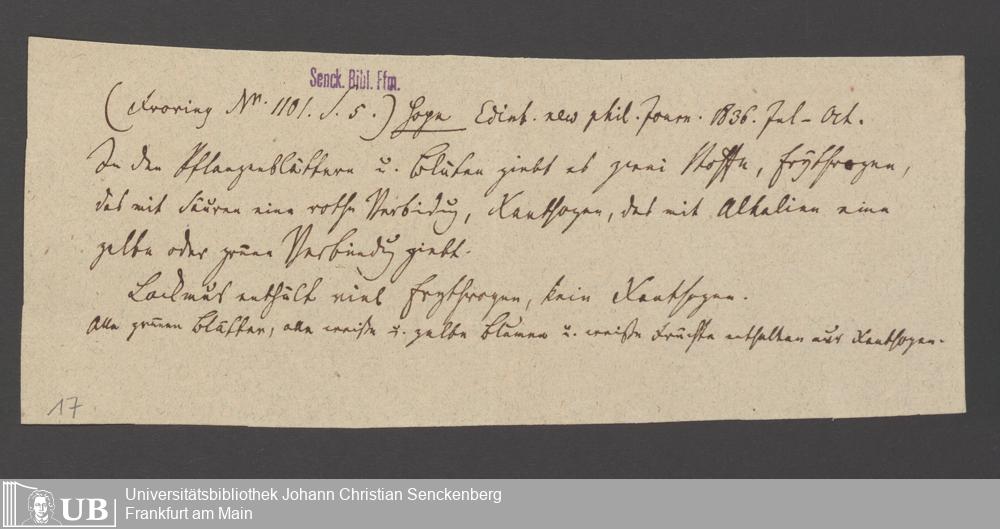 Senck. Bibl. Ffm.
(Froriep Nr. 1101. S. 5.) Hope Edinb. new phil. Journ. 1836. Jul – Oct.
In den Pflanzenblättern u. Blüten giebt es zwei Stoffe, Erythrogen,
das mit Säuren eine rothe Verbidug, Xanthogen, das mit Alkalien eine
gelbe oder grüne Verbindug giebt.
Lackmus enthält viel Erythrogen, kein Xanthogen.
Alle grünen Blätter, alle weiße u. gelbe Blumen u. weiße Früchte enthalten nur Xanthogen.
17
UB
Universitätsbibliothek Johann Christian Senckenberg
Frankfurt am Main